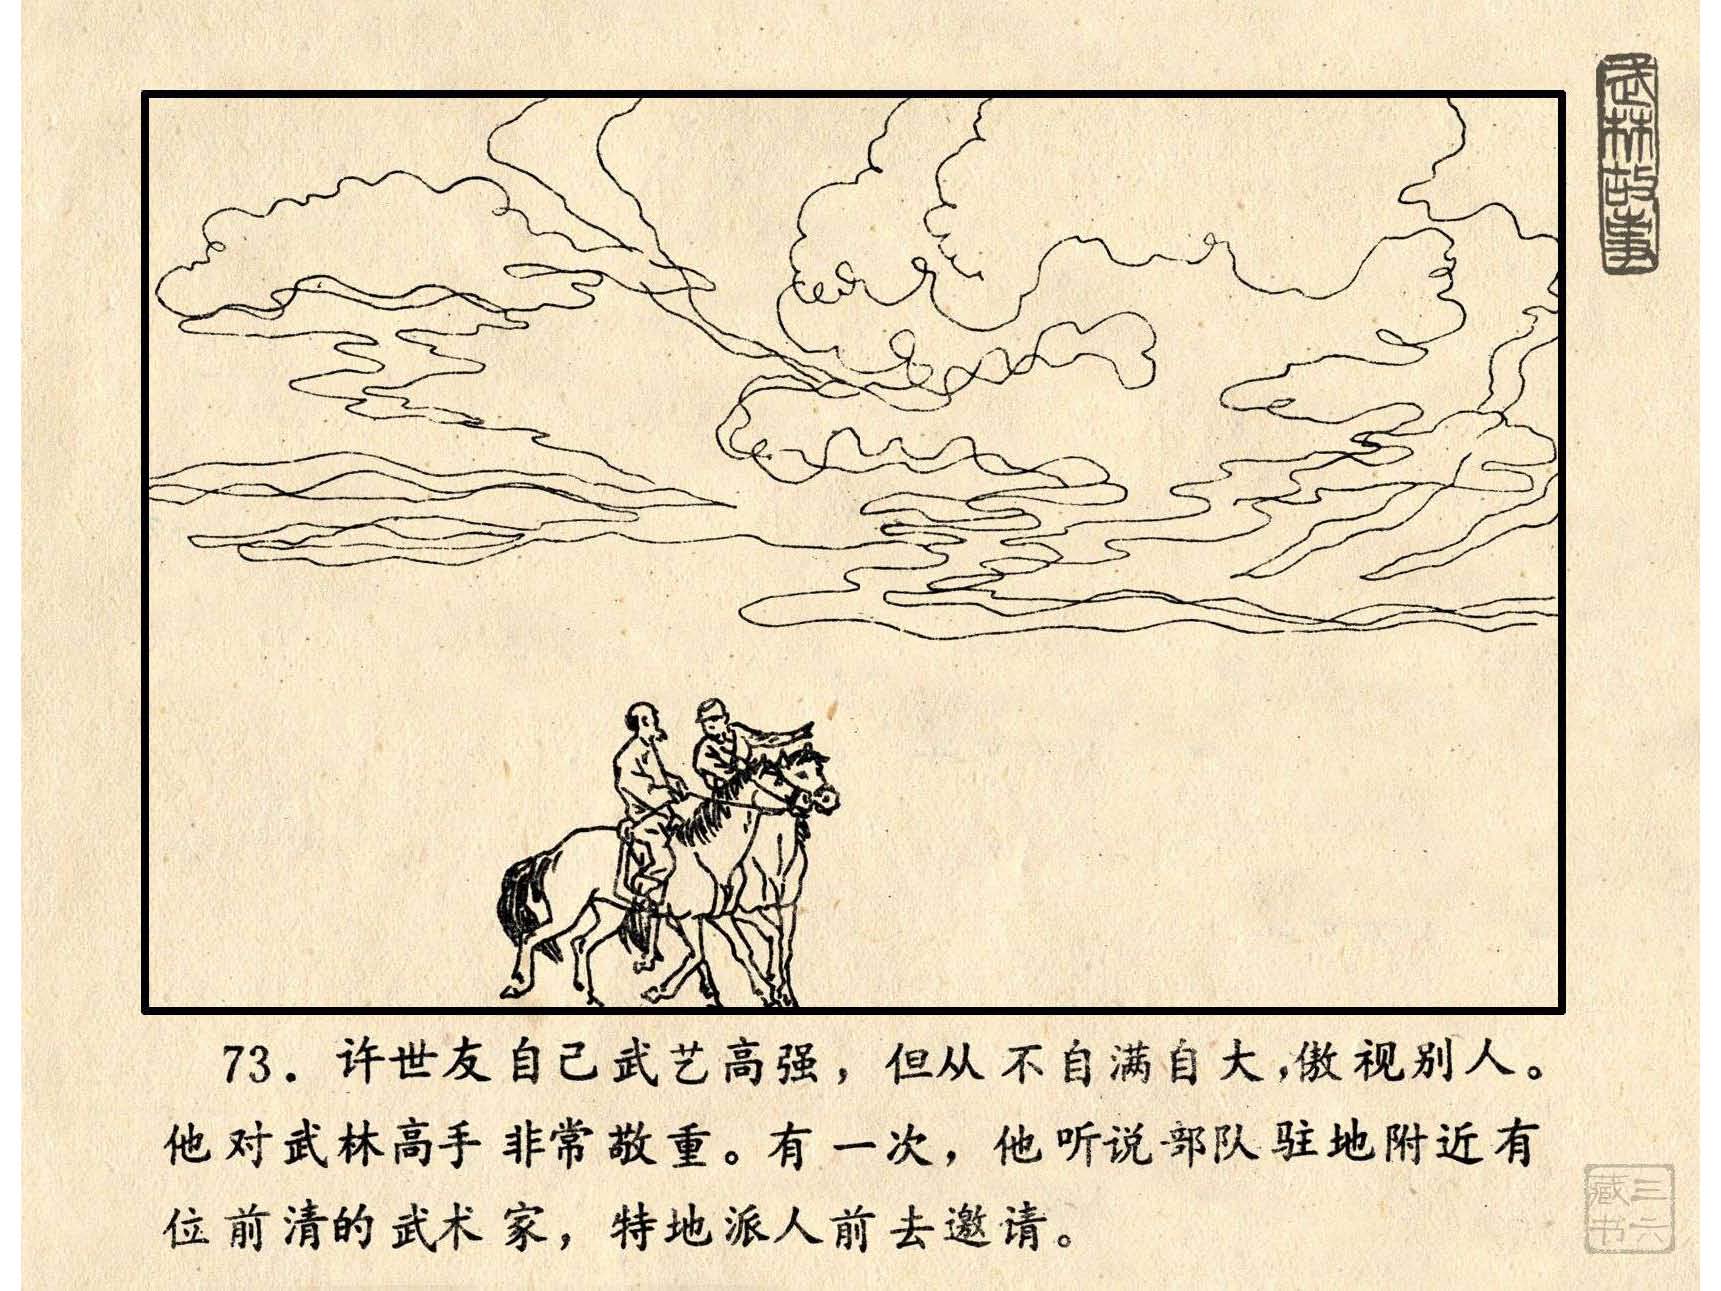 武林故事
73．许世友自己武艺高强，但从不自满自大，傲视别人。
他对武林高手非常敬重。有一次，他听说部队驻地附近有
位前清的武术家，特地派人前去邀请。
三六
藏书